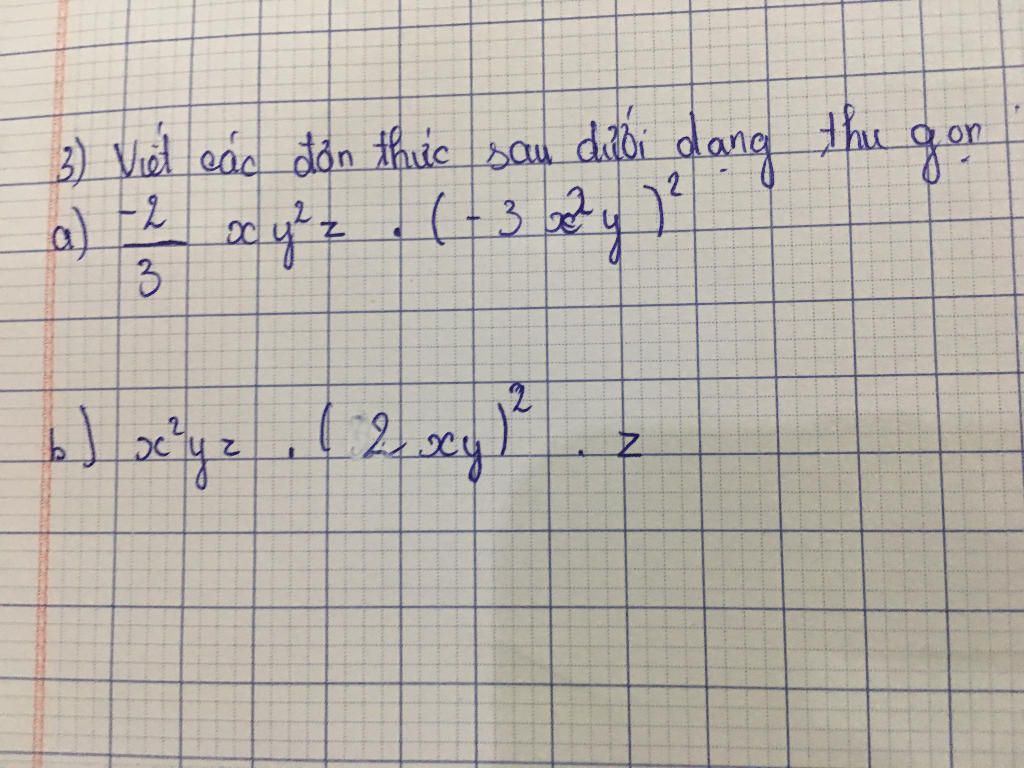 3) Viết các đơn thức sau dưới dạng thu gọn
a) \frac{-2}{3} xy²z . (-3 x²y)²
b) x²yz . (2 xy)² . z